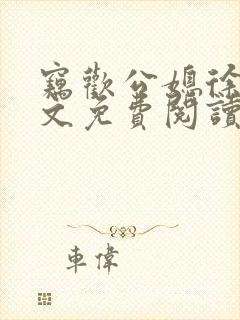 竊歡公媳徐
文免費閱讀
車偉